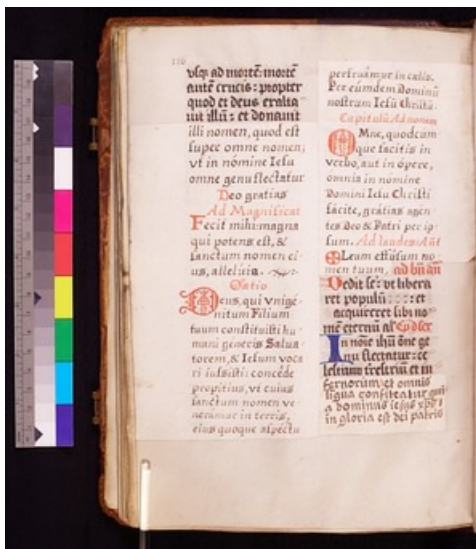 116
vsq; ad mortē: mortē
autē crucis: propter
quod et deus exalta
uit illū: et donauit
illi nomen, quod est
super omne nomen;
vt in nómine Iesu
omne genu flectatur
Deo gratias
Ad Magnificat
Fecit mihi magna
qui potens est, &
sanctum nomen ei
us, alleluia.
Oratio
Deus, qui vnigé
nitum Filium
tuum constituisti hu
mani generis Salua
torem, & Iesum voca
ri iussisti: concéde
propitius, vt cuius
sanctum nomen ve
neramur in terris,
eius quoque aspectu
perfruámur in cælis.
Per eúmdem Dominū
nostrum Iesū Christū.
Capitulū Ad nonam
OMne, quodcum
que facitis in
verbo, aut in ópere,
omnia in nómine
Domini Iesu Christi
fácite, grátias agen
tes Deo & Patri per ip
sum. Ad laudes Añt
Oleum effúsum no
men tuum, ad bñ añ
Dedit se: vt libera
ret populū et
acquireret sibi no
mē eternū al'
In noīe ihū ōne ge
nu flectatur: ce
lestium trestriū et in
fernorum, et omnis
ligua confiteatur qui
a dominus iesus xps i
in gloria est dei patris